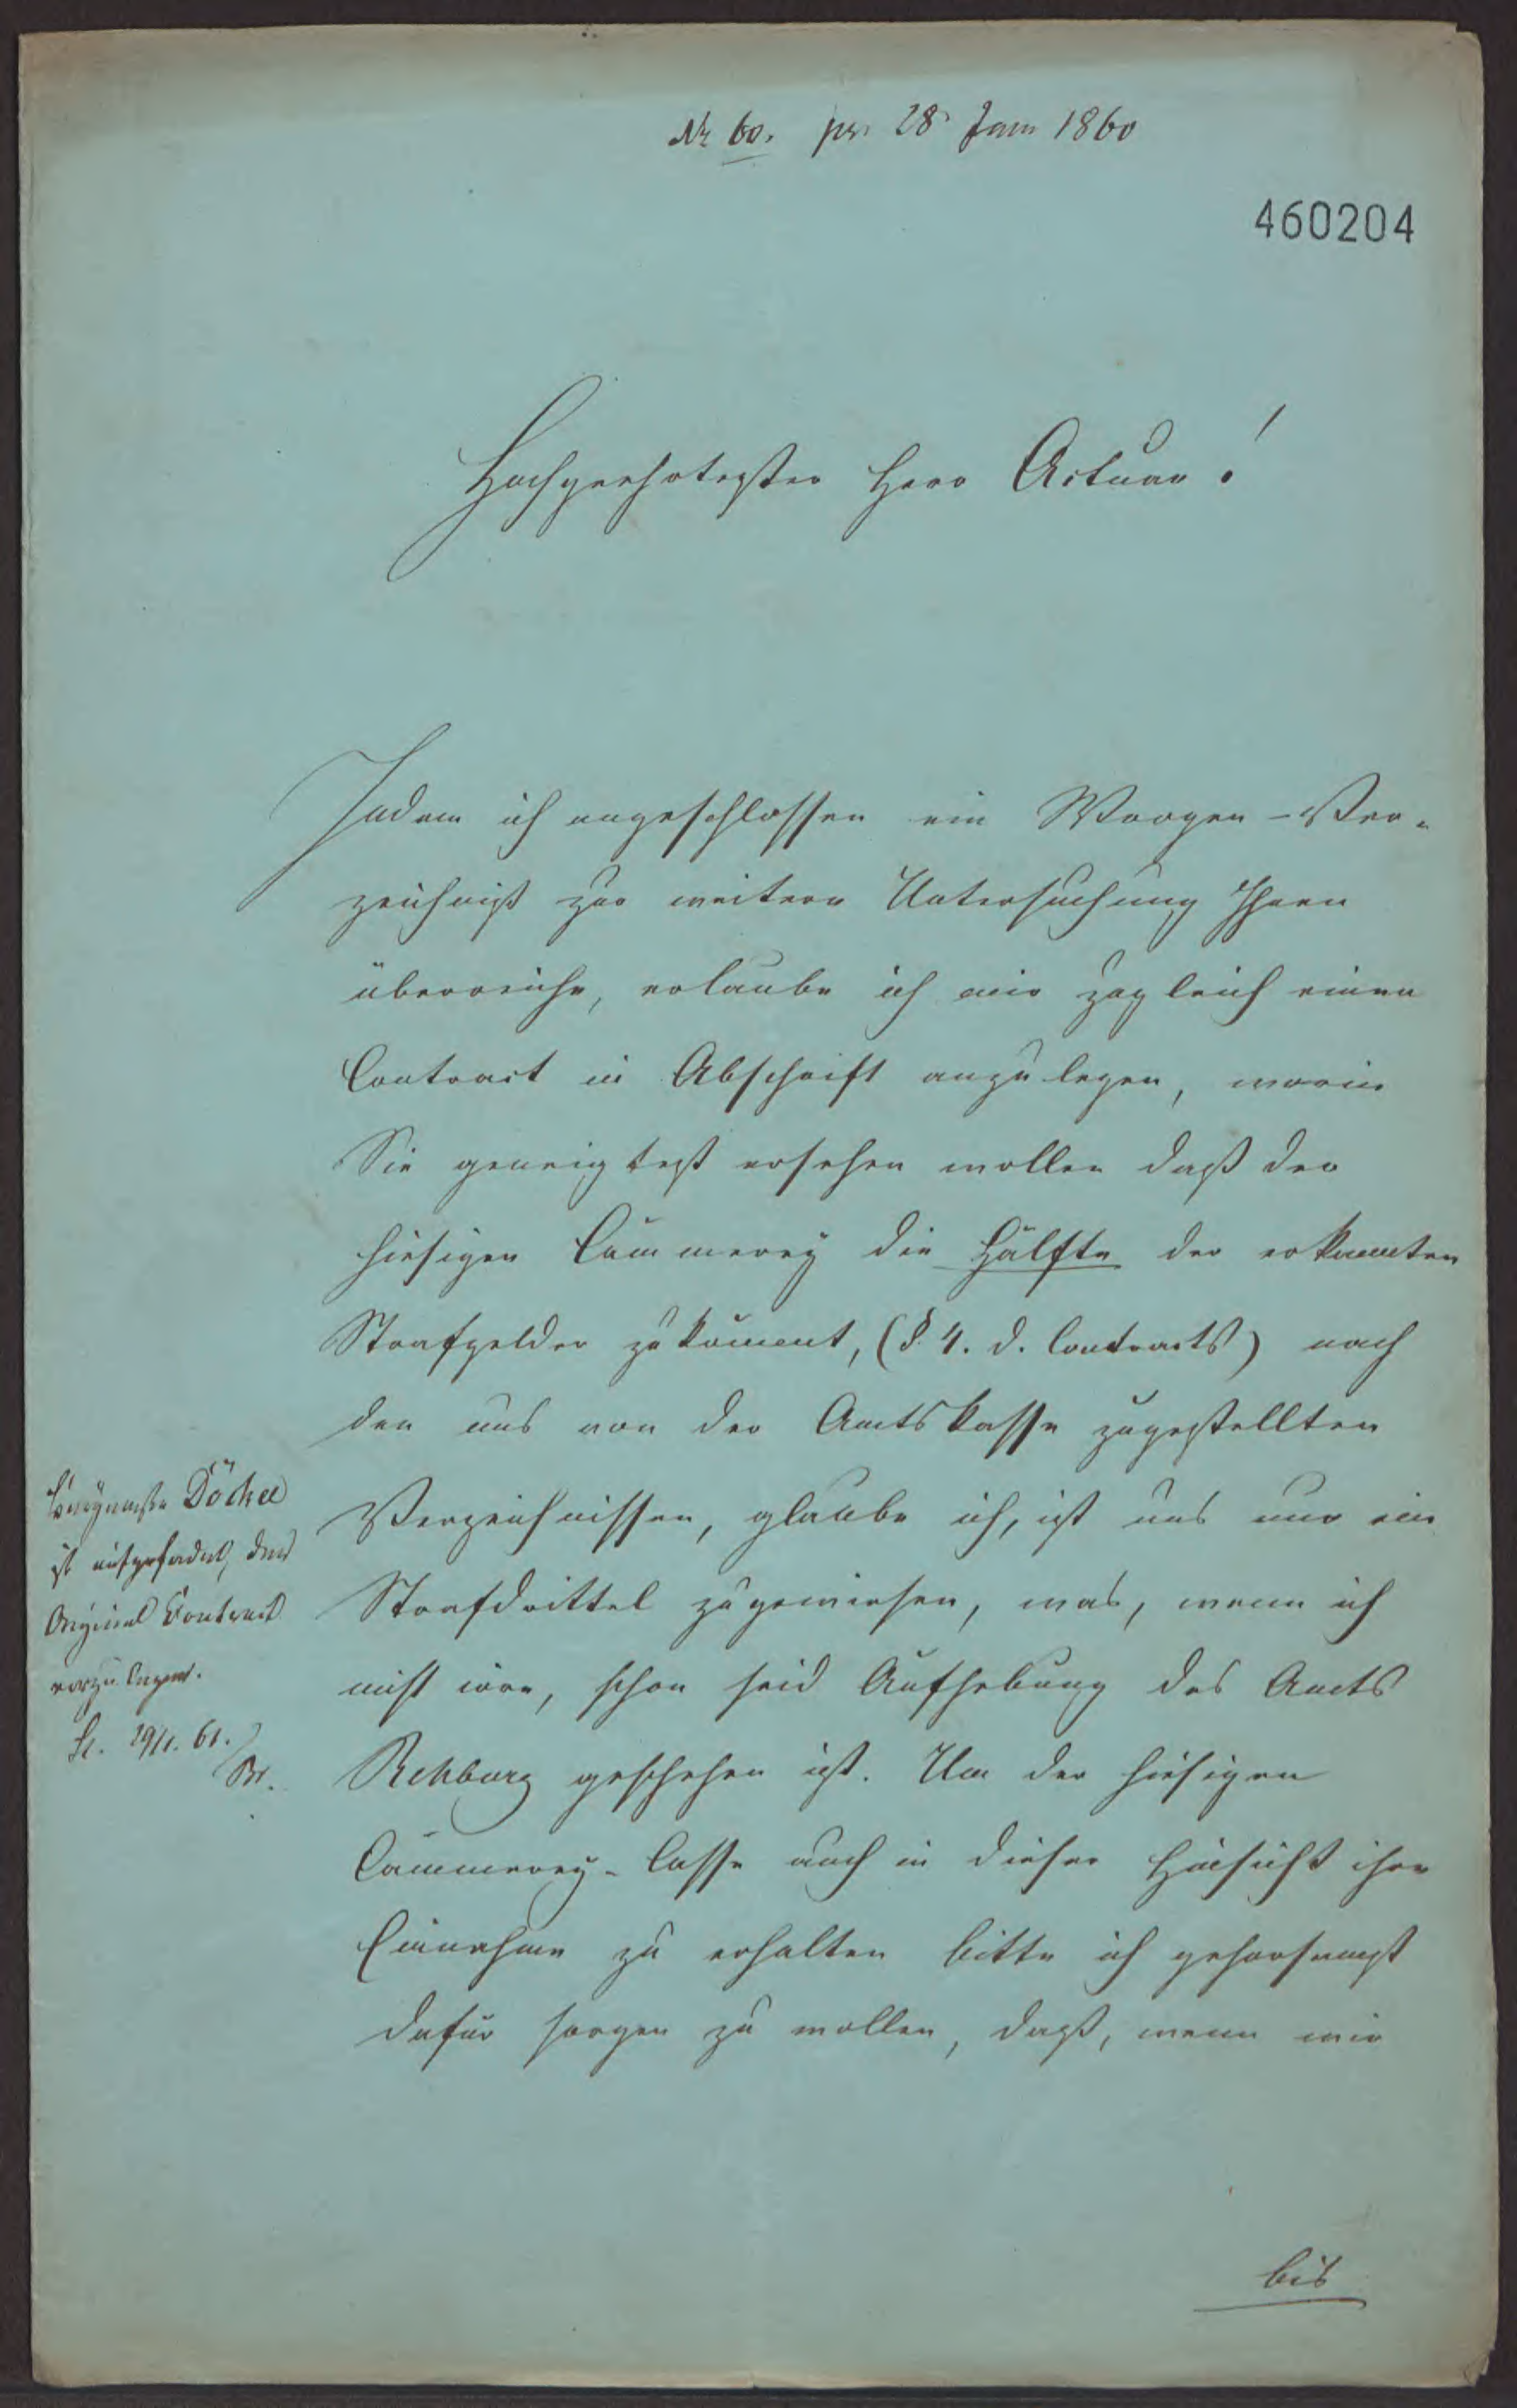 Nr 60. pr. 28 Jan 1860
460204
Hochgeehrtester Herr Actuar!
Indem ich angeschlossen ein Wroogen-Ver-
zeichniß zur weitern Untersuchung Ihnen
überreiche, erlaube ich mir zugleich einen
Contract in Abschrift anzulegen, worin
Sie geneigtest ersehen wollen daß der
hiesigen Cämmerey die Hälfte der erkannten
Strafgelder zukömmt, (§ 4. d. Contracts) nach
den uns von der Amtskasse zugestellten
Verzeichnissen, glaube ich, ist uns nur ein
Strafdrittel zugewiesen, was, wenn ich
nicht irre, schon seid Aufhebung des Amts
Rehburg geschehen ist. Um der hiesigen
Cämmerey-Casse auch in dieser Hinsicht ihre
Einnahme zu erhalten bitte ich gehorsamst
dafür sorgen zu wollen, daß, wenn wir
bis
Bürgermstr Döckel
ist aufgefordert, den
Original Contract
vorzulegen.
St. 29/1. 61.
Br.